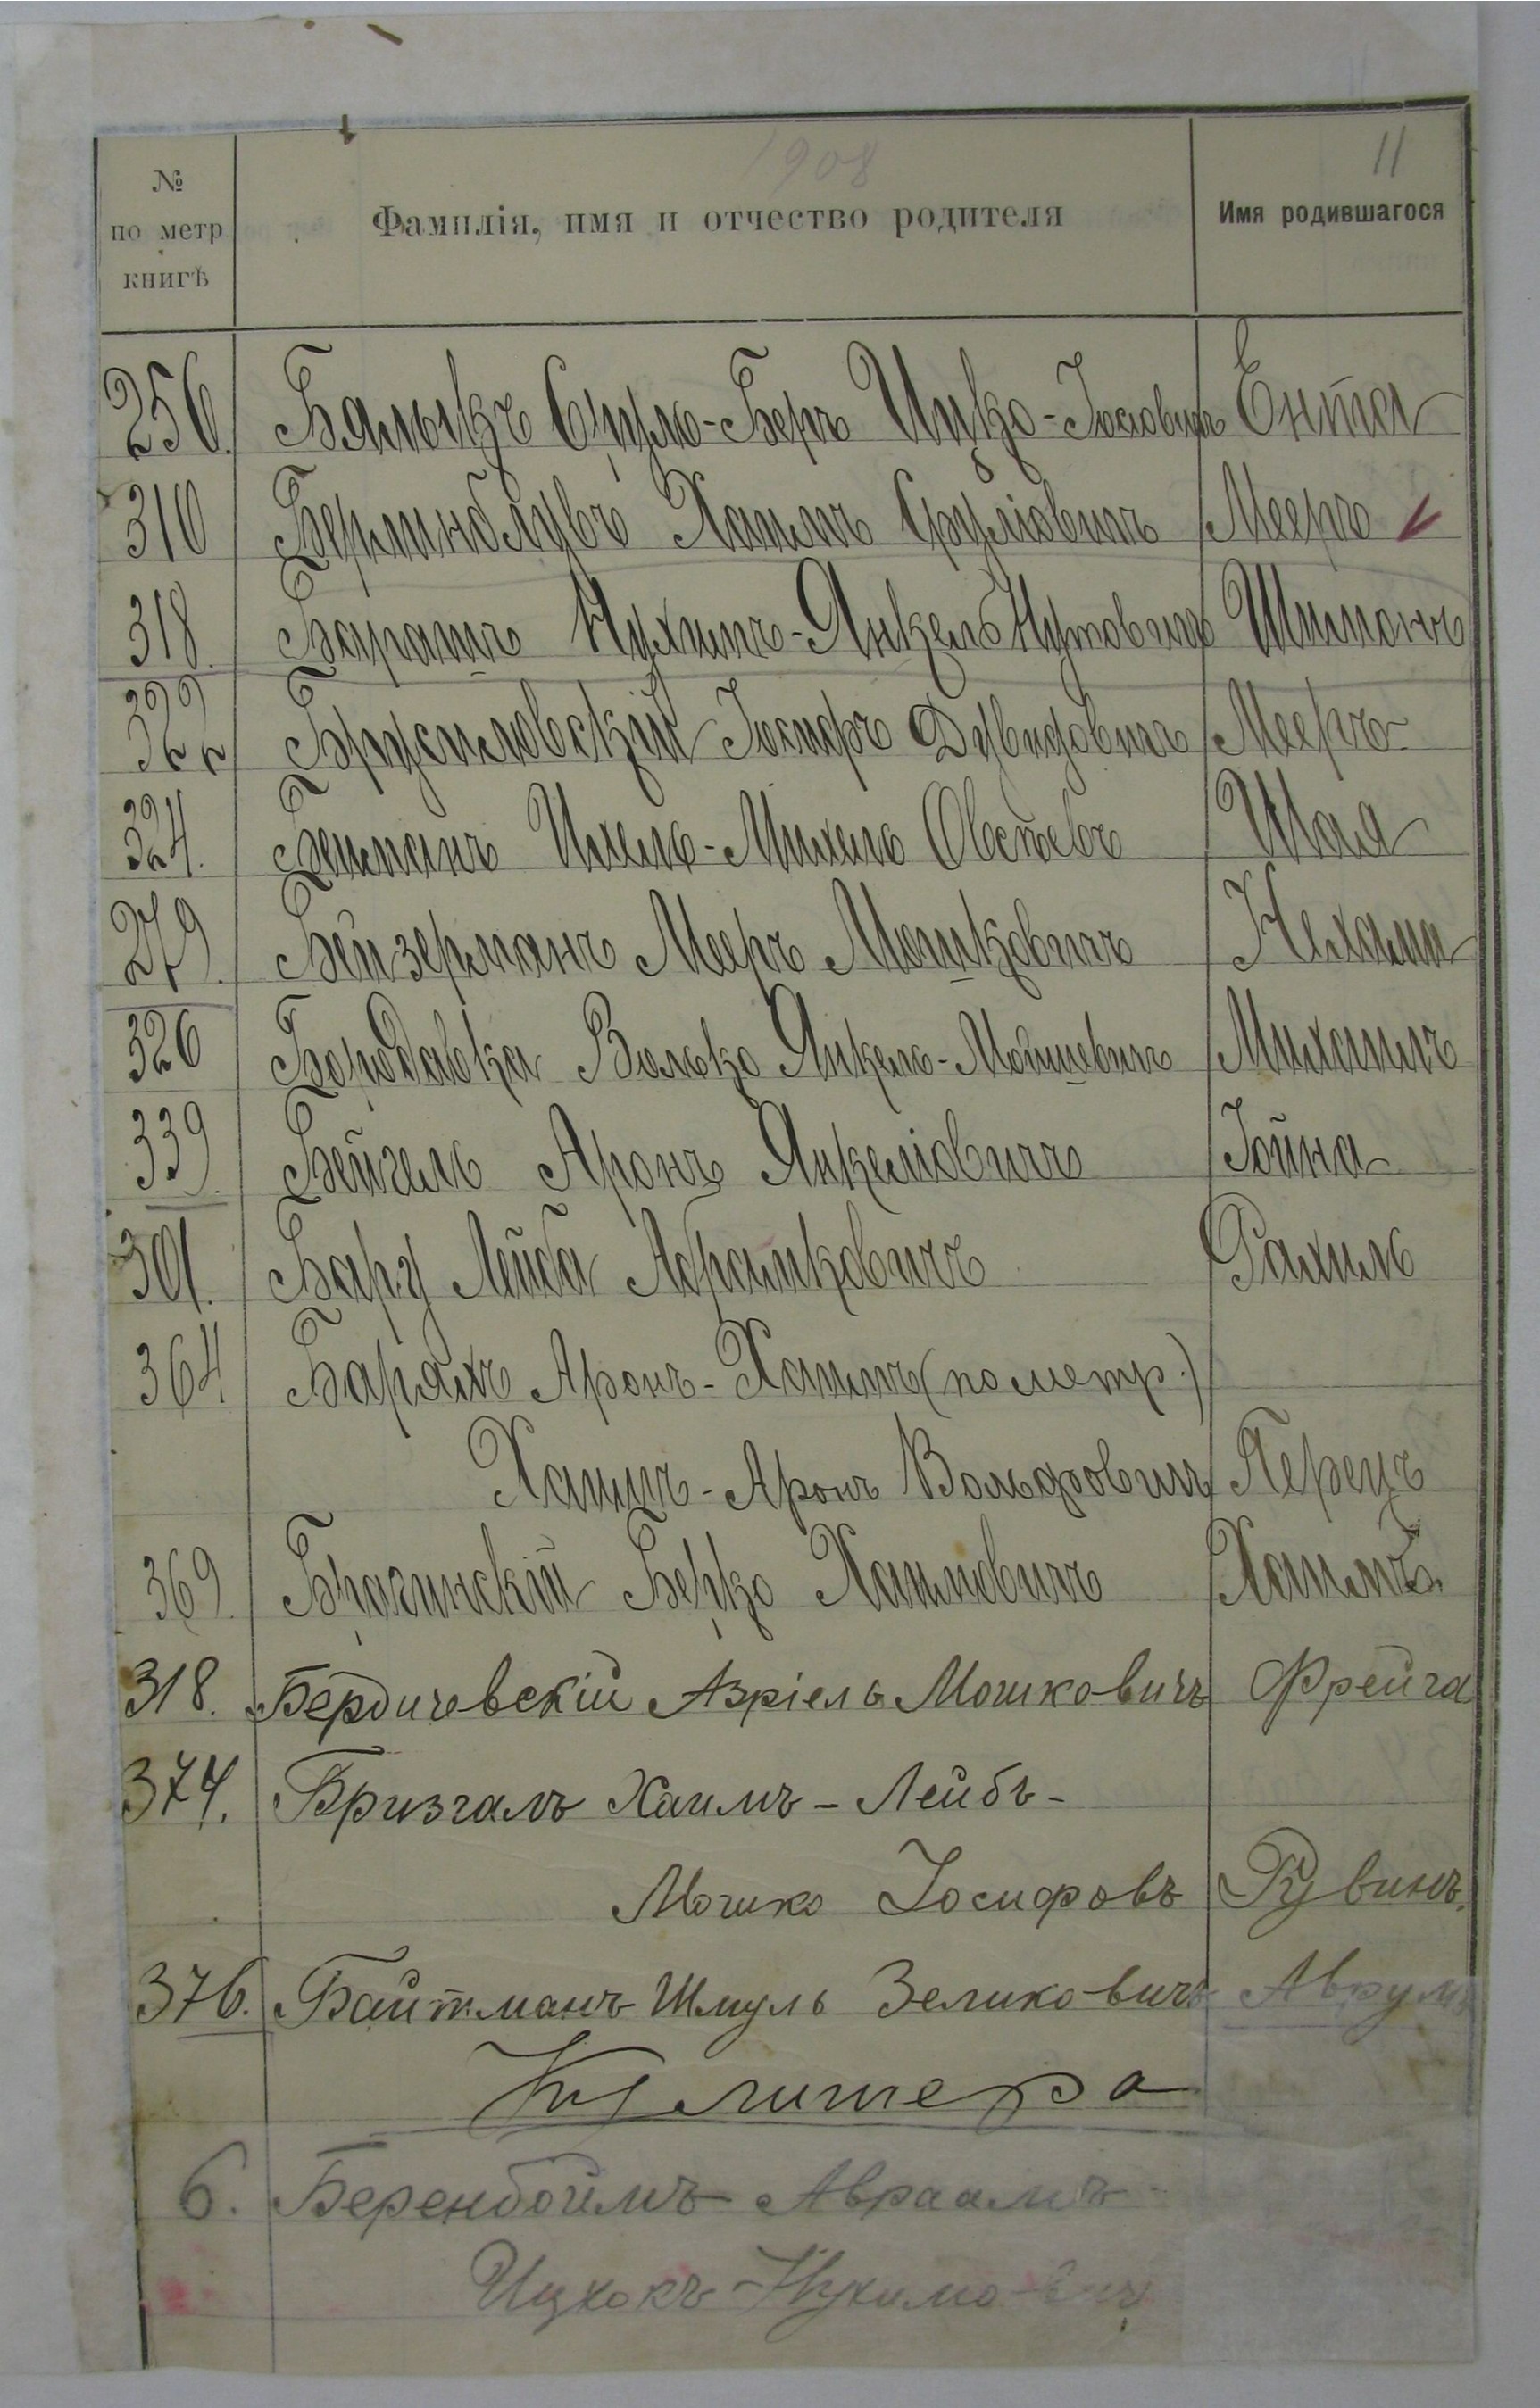 1908
11
№ по метр книгѣ
Фамилія, имя и отчество родителя
Имя родившагося
256. Бялыкъ Сруль-Беръ Ицко-Іосіовичъ Ента
310 Берлинблувъ Хаимъ Срулiовичъ Мееръ
318. Барашъ Нухимъ-Янкель Нутовичъ Шимонъ
322 Брусиловскій Іосифъ Дувидовичъ Мееръ
324. Бешманъ Ихель-Михель Овсѣевъ Шая
279. Бейзерманъ Мееръ Мошковичъ Нехама
326 Бородавка Волько Янкель-Мошкевичъ Михаилъ
339. Бейгель Аронъ Янкеліовичъ Іойна
301. Барг Лейба Абрамковичъ Рахиль
364 Баряхъ Аронъ-Хаимъ (по метр.)
Хаимъ-Аронъ Вольфовичъ Перецъ
369. Брагинскій Берко Хаимовичъ Хаимъ.
318. Бердичевскій Азріель Мошковичъ Фрейга
374. Бризгалъ Хаимъ-Лейбъ-
Мошко Іосифовъ Рувинъ.
376. Байтманъ Шмуль Зеликовичъ Аврумъ
6. Беренбоймъ Авраамъ-
Ицхокъ-Нухимович